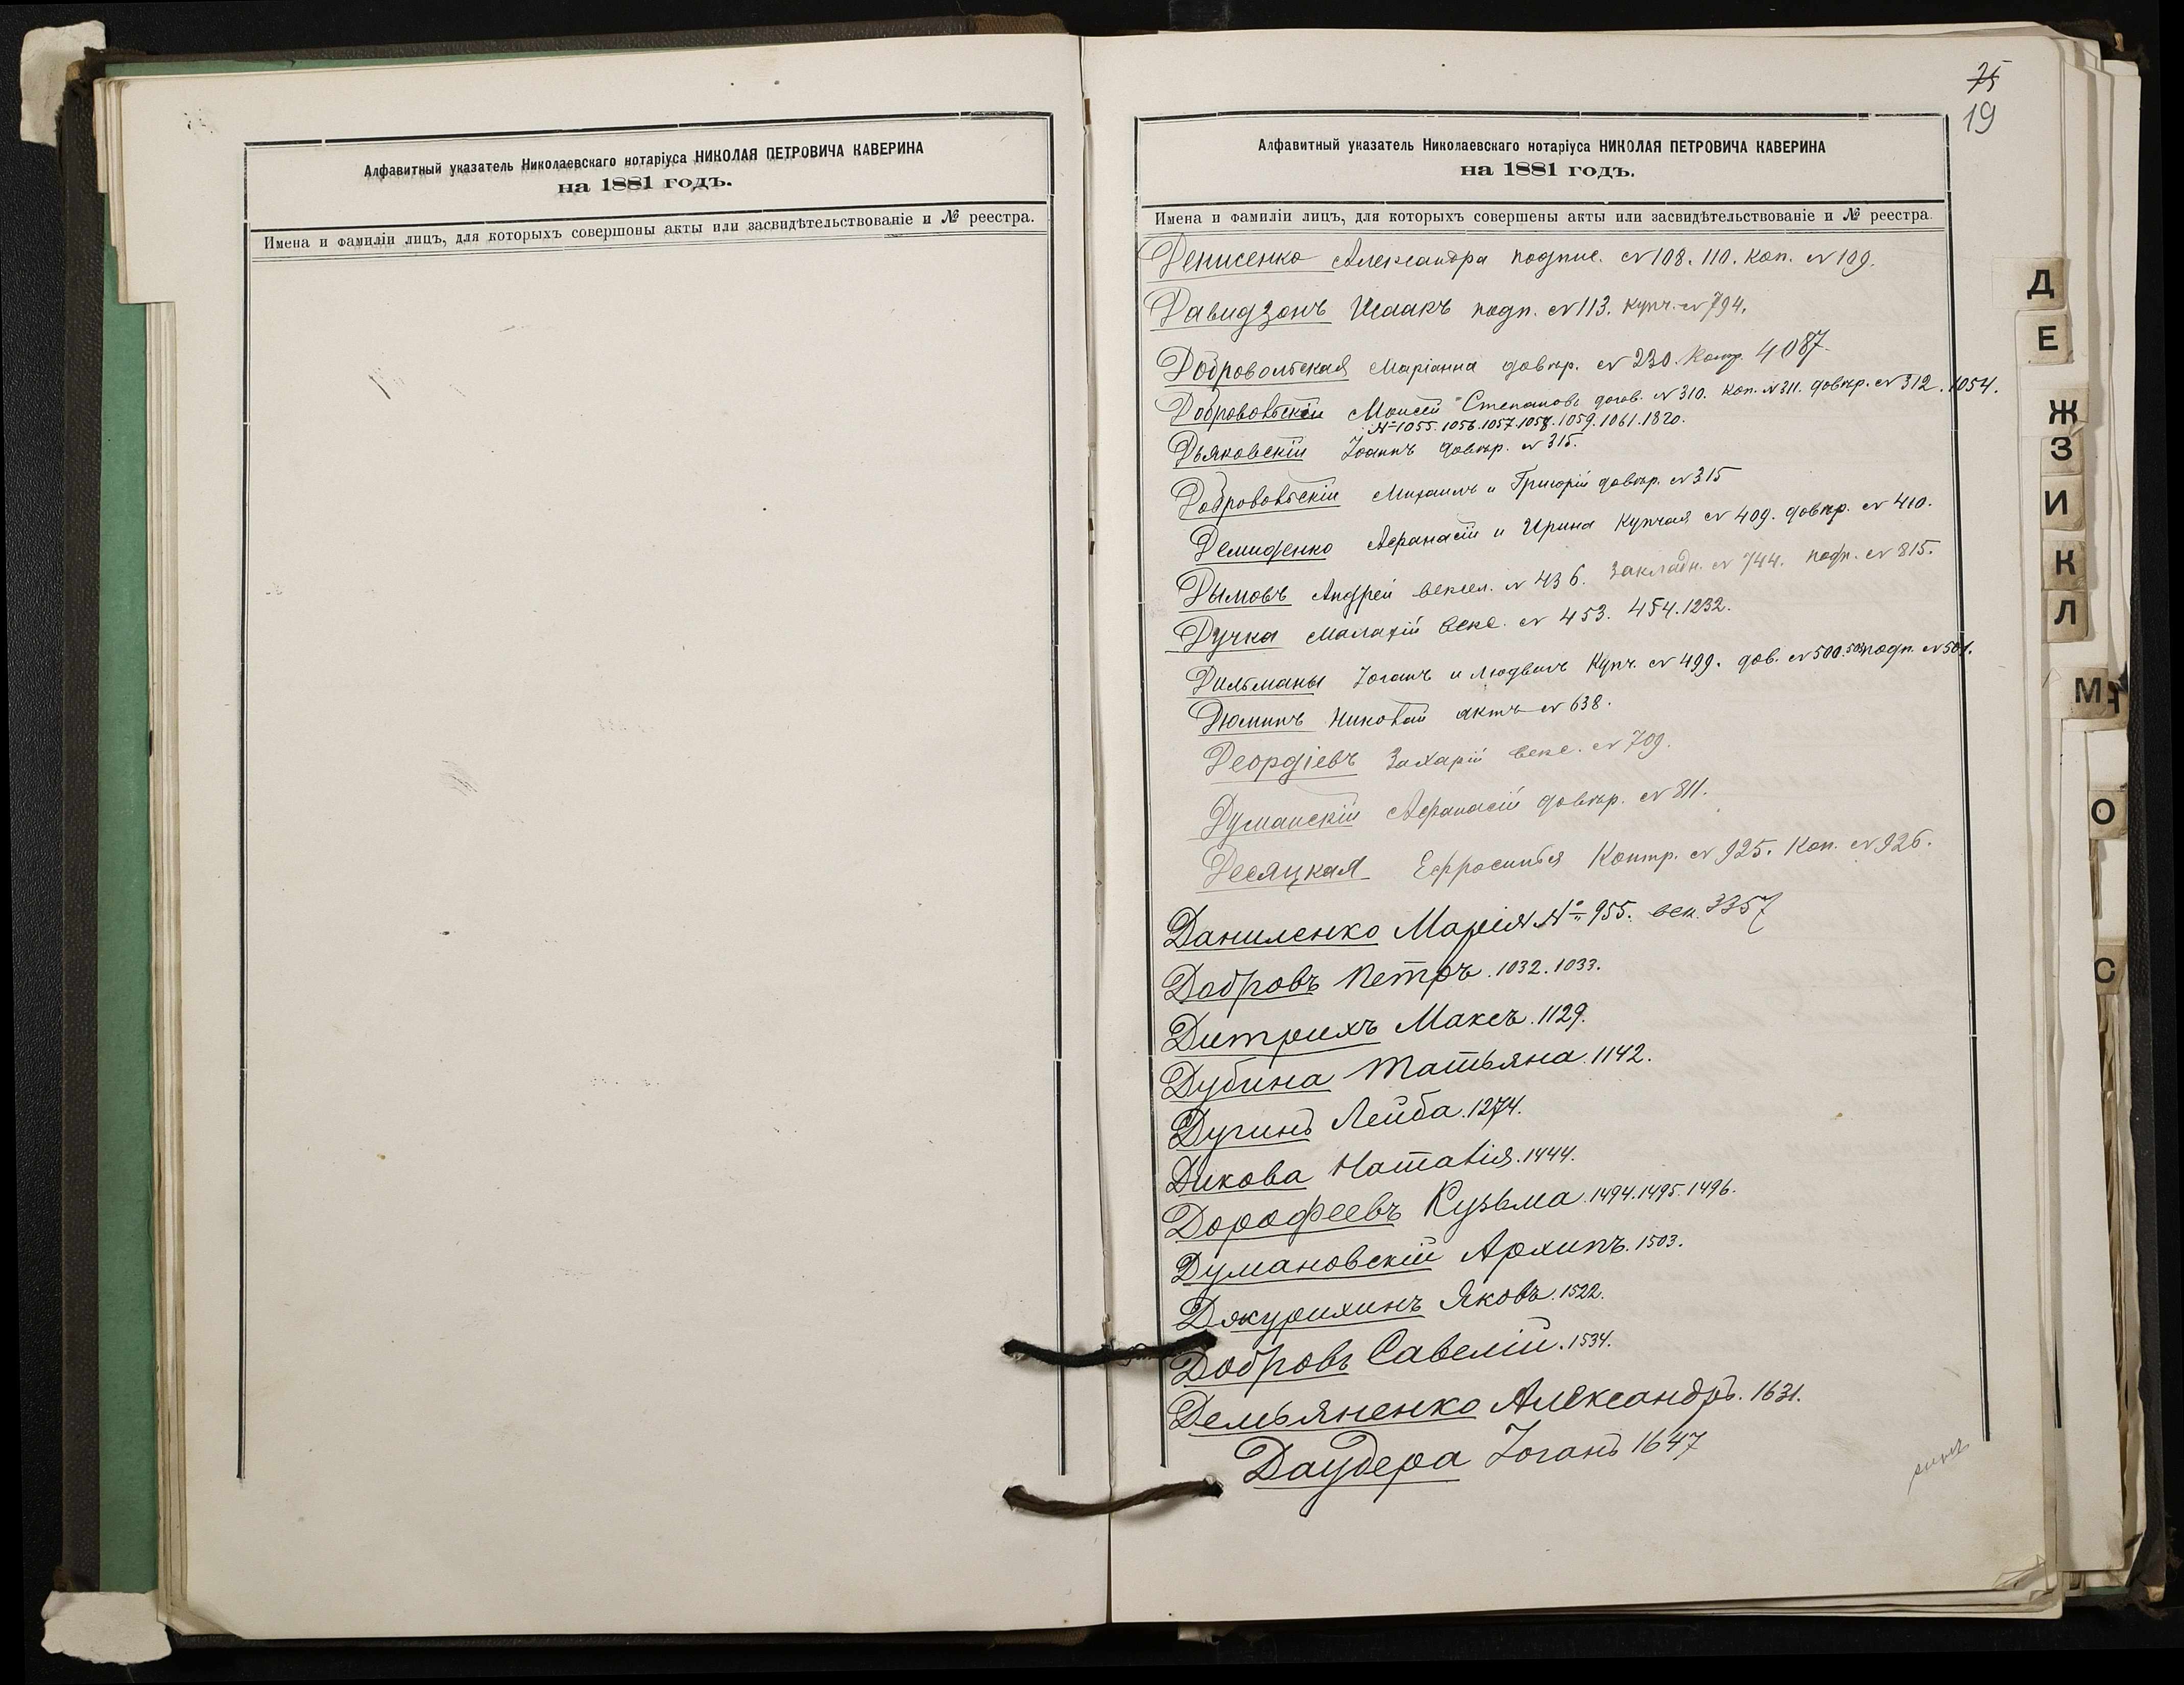 Алфавитный указатель Николаевскаго нотаріуса НИКОЛАЯ ПЕТРОВИЧА КАВЕРИНА
на 1881 годъ.
Имена и фамиліи лицъ, для которыхъ совершоны акты или засвидѣтельствованіе и № реестра.
75
19
Алфавитный указатель Николаевскаго нотаріуса НИКОЛАЯ ПЕТРОВИЧА КАВЕРИНА
на 1881 годъ.
Имена и фамиліи лицъ, для которыхъ совершены акты или засвидѣтельствованіе и № реестра.
Денисенко Александра подпис. № 108. 110. Коп. № 109.
Давидзонъ Исаакъ подп. № 113. купч. № 794.
Добровольская Маріанна довѣр. № 230. Контр. 4087.
Добровольскій Моисей Степановъ догов. № 310. Коп. № 311. довѣр. № 312. 1054.
№ 1055. 1056. 1057. 1058. 1059. 1061. 1820.
Дьяковскій Іоаннъ довѣр. № 315.
Добровольскій Михаилъ и Григорій довѣр. № 315
Демиденко Афанасій и Ирина Купчая № 409. довѣр. № 410.
Дымовъ Андрей вексел. № 436. Закладн. № 744. подп. № 815.
Дучка Малахій векс. № 453. 454. 1232.
Дильманы Іоганъ и Людвигъ Купч. № 499. дов. № 500. подп. № 501.
Дюминъ Николай актъ № 638.
Деордіевъ Захарій векс. № 709.
Думанскій Афанасій довѣр. № 811.
Десяцкая Ефросинья Контр. № 925. Коп. № 926.
Даниленко Марія № 955. век. 3357
Добровъ Петръ. 1032. 1033.
Дитрихъ Максъ. 1129.
Дубина Татьяна. 1142.
Дугинъ Лейба. 1274.
Дикова Наталія. 1444.
Дорофеевъ Кузьма. 1494. 1495. 1496.
Думановскій Архипъ. 1503.
Джурихинъ Яковъ. 1522.
Добровъ Савелій. 1534.
Демьяненко Александръ. 1631.
Даудера Іоганъ 1647
Д
Е
Ж
З
И
К
Л
М
О
С